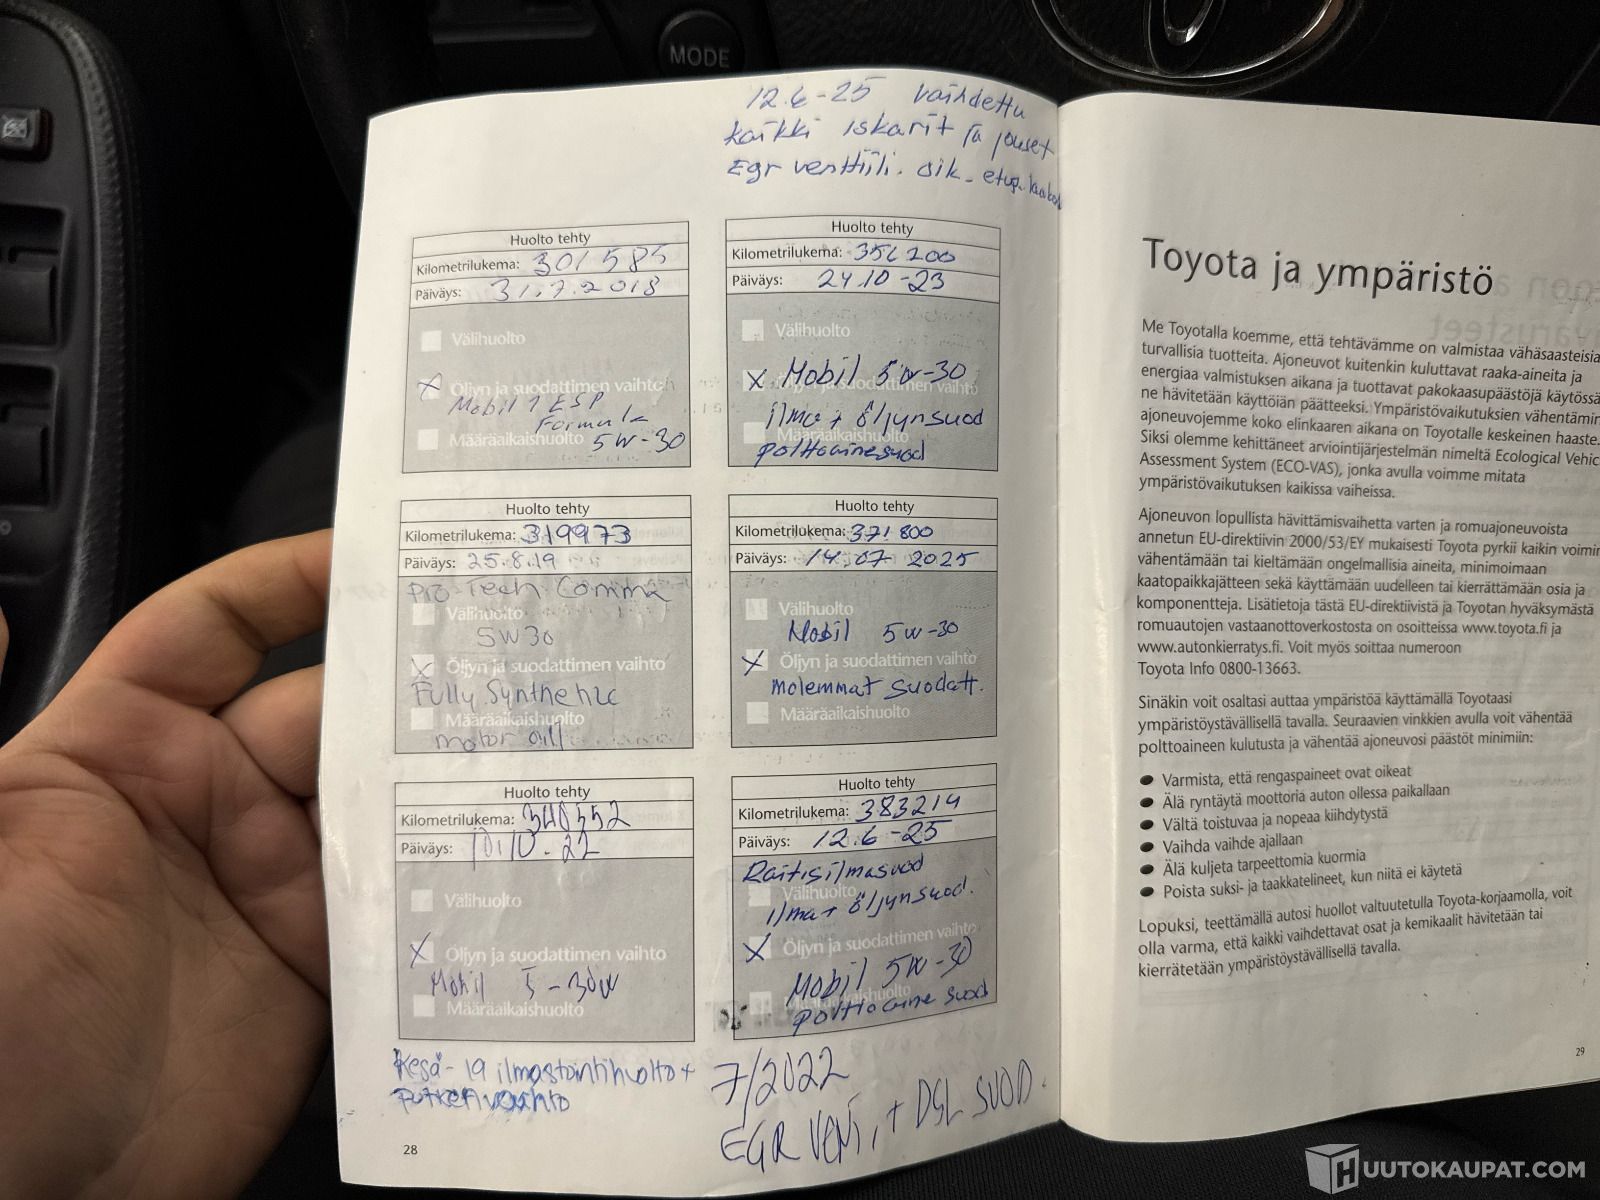 MODE
12.6-25 vaihdettu
kaikki iskarit ja jouset
Egr venttiili. oik. etup.
Huolto tehty
Kilometrilukema: 301585
Päiväys: 31.7.2018
Välihuolto
X Öljyn ja suodattimen vaihto
Mobil 1 ESP
Formula
Määräaikaishuolto 5W-30
Huolto tehty
Kilometrilukema: 319973
Päiväys: 25.8.19
Pro Tech Comma
Välihuolto
5W30
X Öljyn ja suodattimen vaihto
Fully Synthetic
Määräaikaishuolto
motor oil
Huolto tehty
Kilometrilukema: 340552
Päiväys: 10.10-22
Välihuolto
X Öljyn ja suodattimen vaihto
Mobil 5-30W
Määräaikaishuolto
Kesä-19 ilmastointihuolto +
28
Huolto tehty
Kilometrilukema:
Päiväys: 24.10-23
Välihuolto
Mobil 5W-30
X Öljyn ja suodattimen vaihto
ilma + öljynsuod
Määräaikaishuolto
polttoainesuod
Huolto tehty
Kilometrilukema: 371800
Päiväys: 14.07 2025
Välihuolto
Mobil 5W-30
X Öljyn ja suodattimen vaihto
molemmat suodatt.
Määräaikaishuolto
Huolto tehty
Kilometrilukema: 383214
Päiväys: 12.6-25
Raitisilmasuod
Välihuolto
ilma + öljynsuod.
X Öljyn ja suodattimen vaihto
Mobil 5W-30
Määräaikaishuolto
polttoaine suod
7/2022
EGR VENT, + DSL SUOD.
Toyota ja ympäristö
Me Toyotalla koemme, että tehtävämme on valmistaa vähäsaasteisia
turvallisia tuotteita. Ajoneuvot kuitenkin kuluttavat raaka-aineita ja
energiaa valmistuksen aikana ja tuottavat pakokaasupäästöjä käytössä
ne hävitetään käyttöiän päätteeksi. Ympäristövaikutuksien vähentämin
ajoneuvojemme koko elinkaaren aikana on Toyotalle keskeinen haaste.
Siksi olemme kehittäneet arviointijärjestelmän nimeltä Ecological Vehic
Assessment System (ECO-VAS), jonka avulla voimme mitata
ympäristövaikutuksen kaikissa vaiheissa.
Ajoneuvon lopullista hävittämisvaihetta varten ja romuajoneuvoista
annetun EU-direktiivin 2000/53/EY mukaisesti Toyota pyrkii kaikin voimin
vähentämään tai kieltämään ongelmallisia aineita, minimoimaan
kaatopaikkajätteen sekä käyttämään uudelleen tai kierrättämään osia ja
komponentteja. Lisätietoja tästä EU-direktiivistä ja Toyotan hyväksymästä
romuautojen vastaanottoverkostosta on osoitteissa www.toyota.fi ja
www.autonkierratys.fi. Voit myös soittaa numeroon
Toyota Info 0800-13663.
Sinäkin voit osaltasi auttaa ympäristöä käyttämällä Toyotaasi
ympäristöystävällisellä tavalla. Seuraavien vinkkien avulla voit vähentää
polttoaineen kulutusta ja vähentää ajoneuvosi päästöt minimiin:
● Varmista, että rengaspaineet ovat oikeat
● Älä ryntäytä moottoria auton ollessa paikallaan
● Vältä toistuvaa ja nopeaa kiihdytystä
● Vaihda vaihde ajallaan
● Älä kuljeta tarpeettomia kuormia
● Poista suksi- ja taakkatelineet, kun niitä ei käytetä
Lopuksi, teettämällä autosi huollot valtuutetulla Toyota-korjaamolla, voit
olla varma, että kaikki vaihdettavat osat ja kemikaalit hävitetään tai
kierrätetään ympäristöystävällisellä tavalla.
29
HUUTOKAUPAT.COM